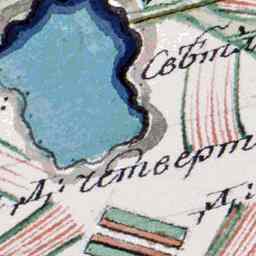 Свѣтл
Д: четверт
Д: